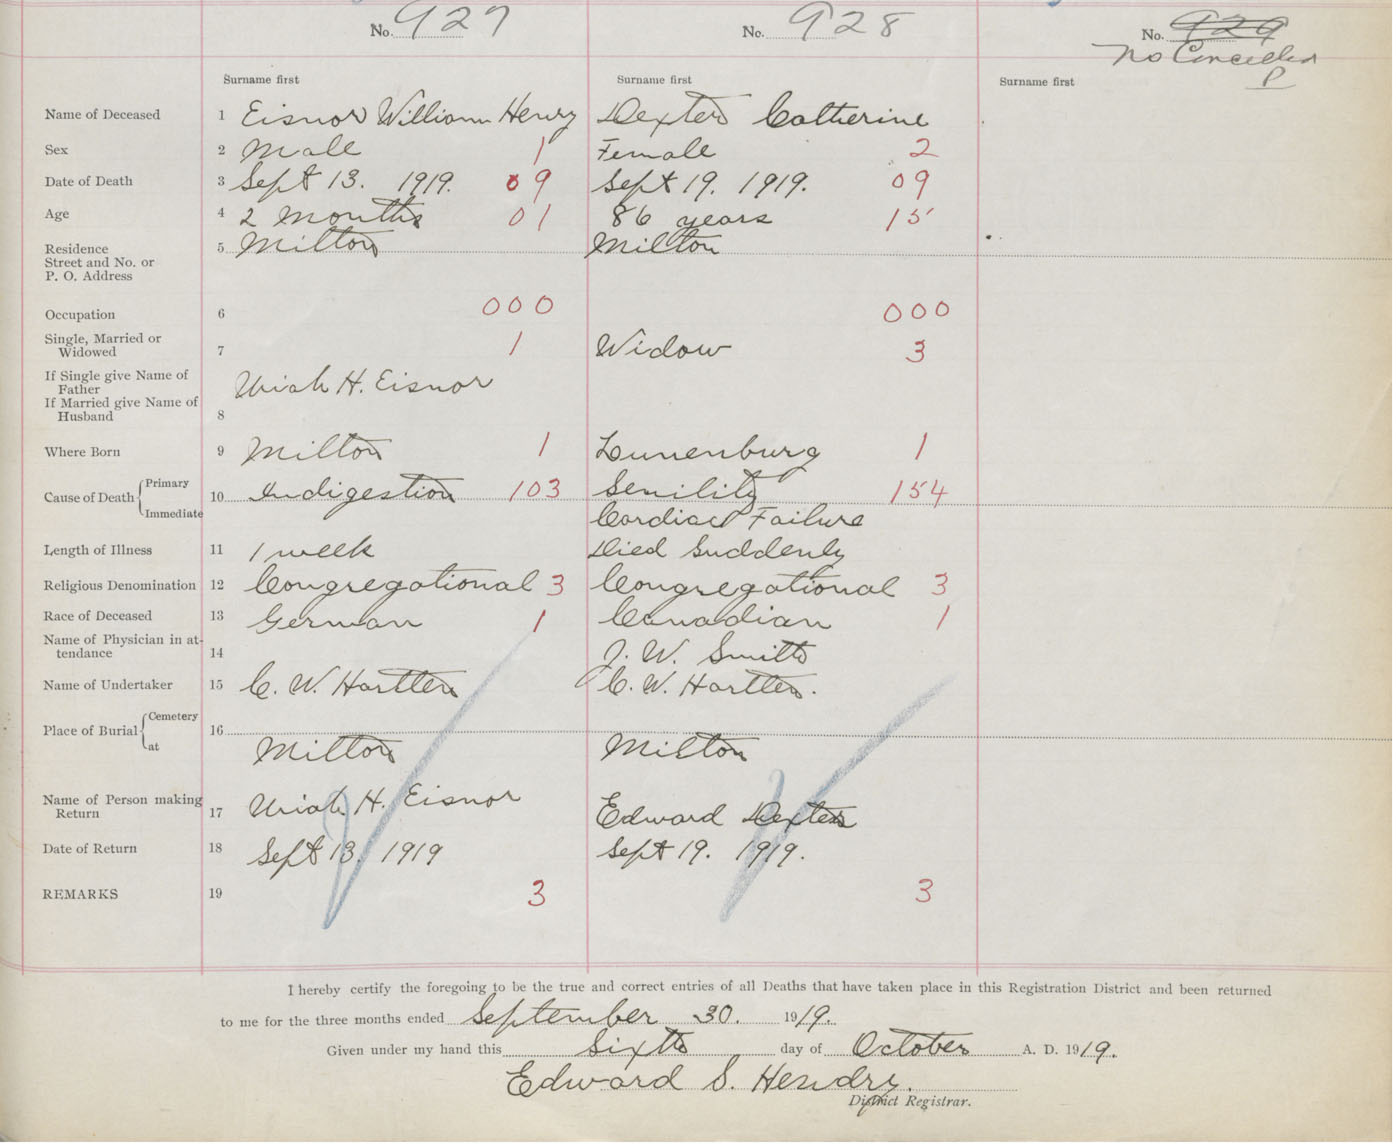 No. 927 No. 928 No. 929
No Cancelled
P
Surname first Surname first Surname first
Name of Deceased 1 Eisnor William Henry Dexter Catherine
Sex 2 Male 1 Female 2
Date of Death 3 Sept 13. 1919. 09 Sept 19. 1919. 09
Age 4 2 months 01 86 years 15
Residence
Street and No. or
P. O. Address
5 Milton Milton
Occupation 6 000 000
Single, Married or
Widowed 7 1 Widow 3
If Single give Name of
Father
If Married give Name of
Husband 8
Uriah H. Eisnor
Where Born 9 Milton 1 Lunenburg 1
Cause of Death Primary
Immediate
10 Indigestion 103 Senility 154
Cardiac Failure
Length of Illness 11 1 week Died Suddenly
Religious Denomination 12 Congregational 3 Congregational 3
Race of Deceased 13 German 1 Canadian 1
Name of Physician in at-
tendance 14 J. W. Smith
Name of Undertaker 15 C. W. Hartten C. W. Hartten.
Place of Burial Cemetery
at
16 Milton Milton
Name of Person making
Return 17 Uriah H. Eisnor Edward Dexter
Date of Return 18 Sept 13. 1919 Sept 19. 1919.
REMARKS 19 3 3
I hereby certify the foregoing to be the true and correct entries of all Deaths that have taken place in this Registration District and been returned
to me for the three months ended September 30. 1919.
Given under my hand this Sixth day of October A. D. 1919.
Edward S. Hendry.
District Registrar.